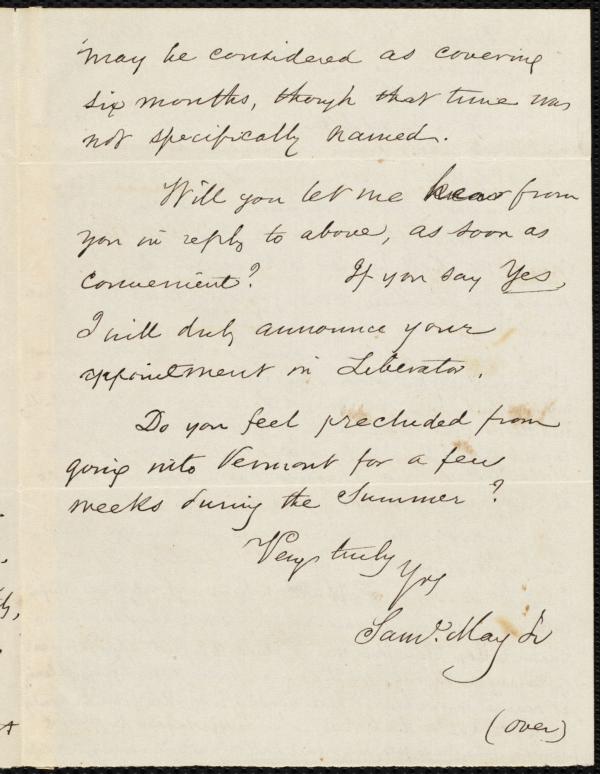 may be considered as covering
six months, though that time was
not specifically named.
Will you let me hear from
you in reply to above, as soon as
convenient? If you say Yes,
I will duly announce your
appointment in Liberator.
Do you feel precluded from
going into Vermont for a few
weeks during the Summer?
Very truly
Yrs
Saml. May Jr
(over)